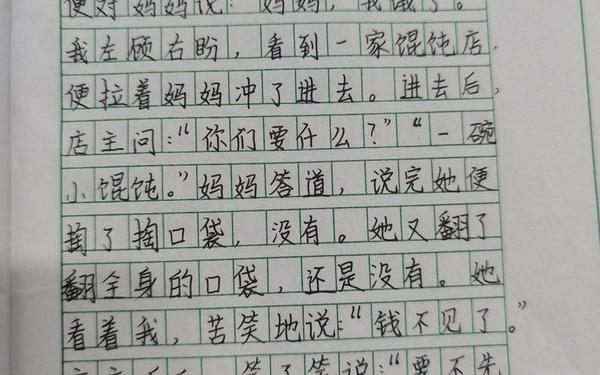 便对妈妈说：“妈妈，我饿了。
我左顾右盼，看到一家馄饨店，
便拉着妈妈冲了进去。进去后，
店主问：“你们要什么？”“一碗
小馄饨。”妈妈答道，说完她便
掏了掏口袋，没有。她又翻了
翻全身的口袋，还是没有。她
看着我，苦笑地说：“钱不见了。”
笑了笑说：“要不先